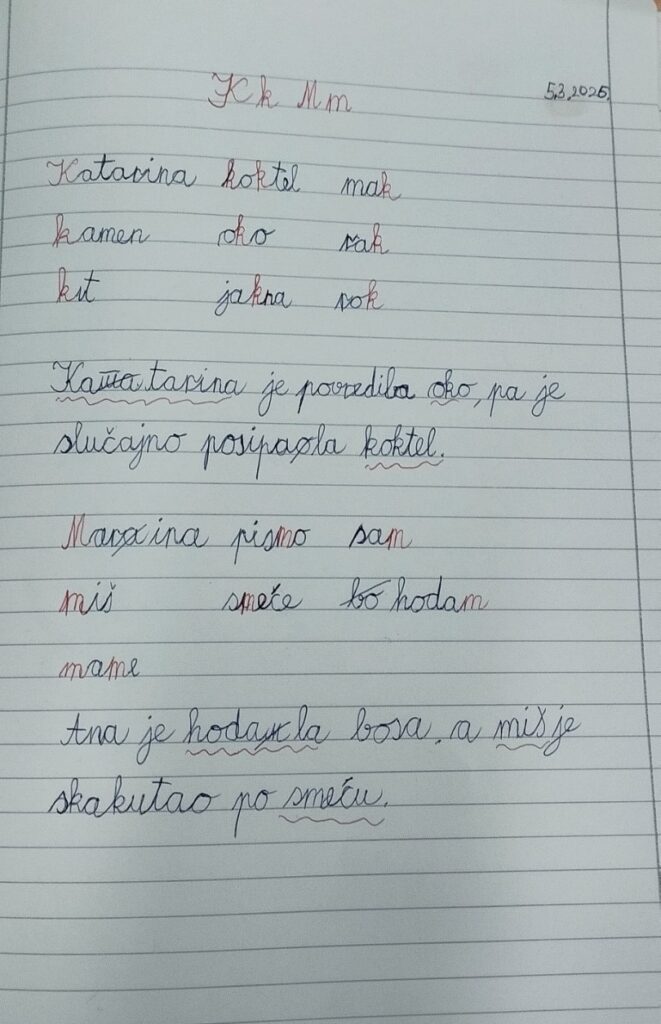 Kk Mm 5.3.2025.
Katarina koktel mak
kamen oko rak
kit jakna rok
Katarina je povredila oko, pa je
slučajno posipala koktel.
Marina pismo sam
miš smeće hodam
mame
Ana je hodala bosa, a miš je
skakutao po smeću.